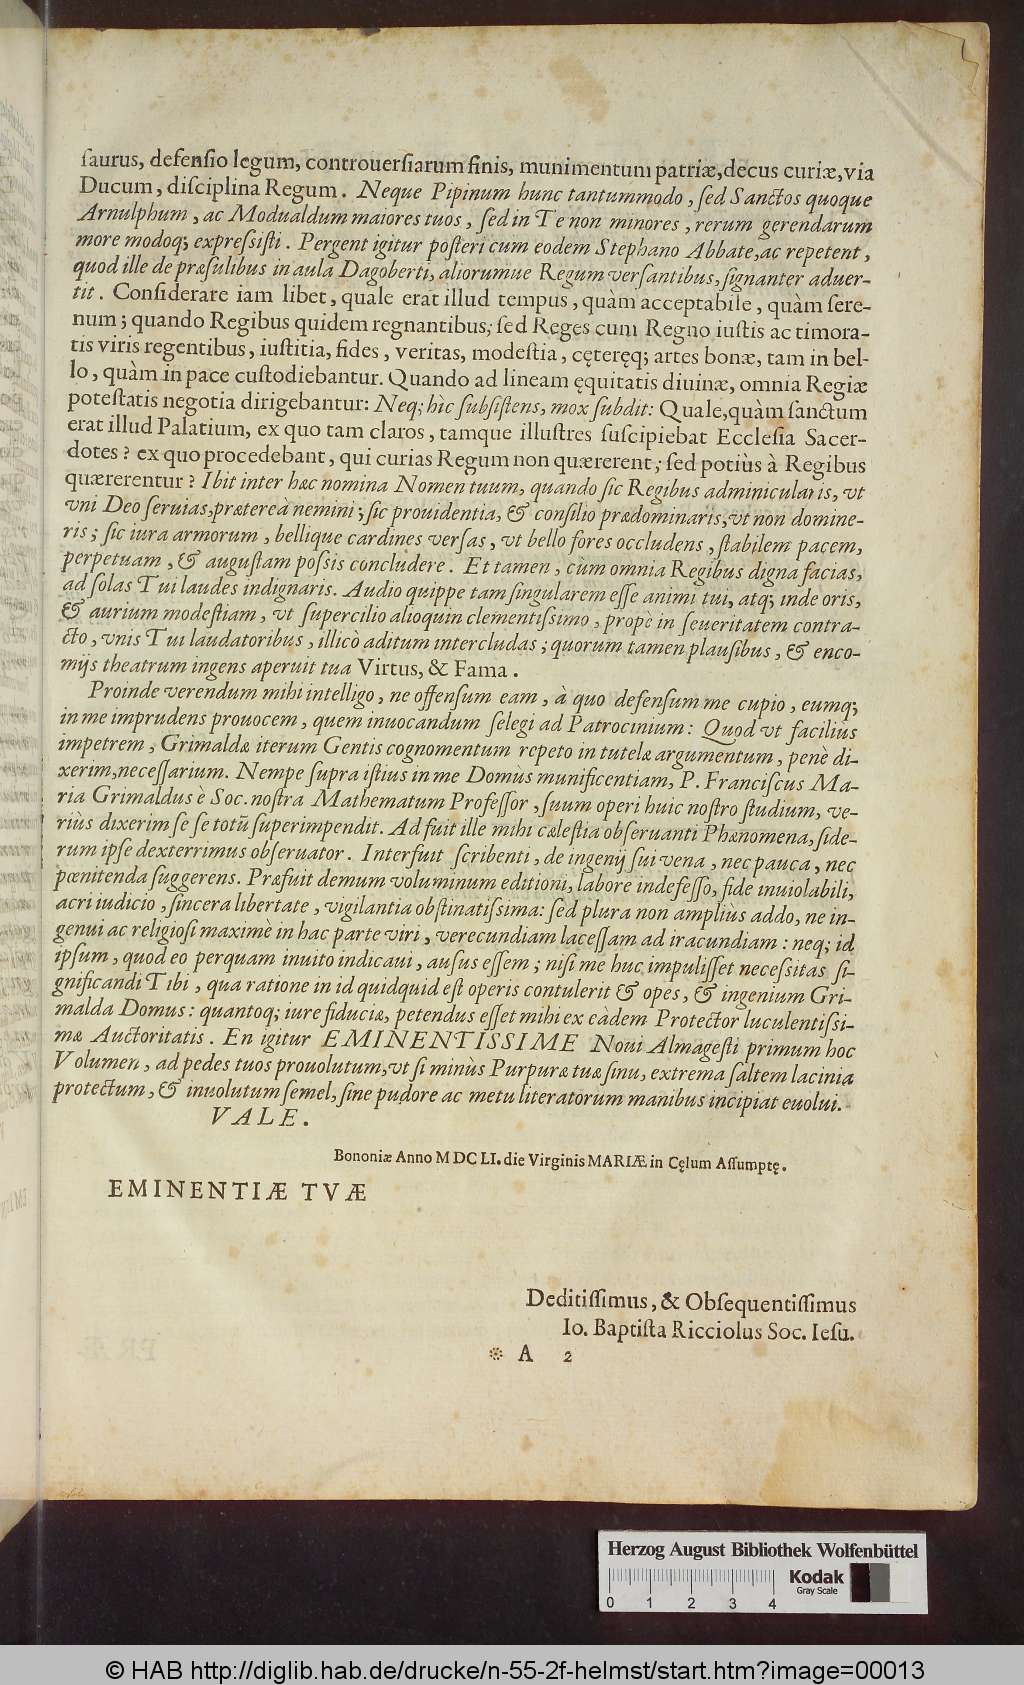 ſaurus, defenſio legum, controuerſiarum finis, munimentum patriæ, decus curiæ, via
Ducum, diſciplina Regum. Neque Pipinum hunc tantummodo, ſed Sanctos quoque
Arnulphum, ac Modualdum maiores tuos, ſed in Te non minores, rerum gerendarum
more modoq; expreſsiſti. Pergent igitur poſteri cum eodem Stephano Abbate, ac repetent,
quod ille de præſulibus in aula Dagoberti, aliorumue Regum verſantibus, ſignanter aduer-
tit. Conſiderare iam libet, quale erat illud tempus, quàm acceptabile, quàm ſere-
num; quando Regibus quidem regnantibus, ſed Reges cum Regno iuſtis ac timora-
tis viris regentibus, iuſtitia, fides, veritas, modeſtia, cęteręq; artes bonæ, tam in bel-
lo, quàm in pace cuſtodiebantur. Quando ad lineam ęquitatis diuinæ, omnia Regiæ
poteſtatis negotia dirigebantur: Neq; hìc ſubſiſtens, mox ſubdit: Quale, quàm ſanctum
erat illud Palatium, ex quo tam claros, tamque illuſtres ſuſcipiebat Eccleſia Sacer-
dotes? ex quo procedebant, qui curias Regum non quærerent; ſed potiùs à Regibus
quærerentur? Ibit inter hæc nomina Nomen tuum, quando ſic Regibus adminicularis, vt
vni Deo ſeruias, prætereà nemini; ſic prouidentia, & conſilio prædominaris, vt non domine-
ris; ſic iura armorum, bellique cardines verſas, vt bello fores occludens, ſtabilem pacem,
perpetuam, & auguſtam poſsis concludere. Et tamen, cùm omnia Regibus digna facias,
ad ſolas Tui laudes indignaris. Audio quippe tam ſingularem eſſe animi tui, atq; inde oris,
& aurium modeſtiam, vt ſupercilio alioquin clementiſsimo, propè in ſeueritatem contra-
cto, vnis Tui laudatoribus, illicò aditum intercludas; quorum tamen plauſibus, & enco-
mijs theatrum ingens aperuit tua Virtus, & Fama.
Proinde verendum mihi intelligo, ne offenſum eam, à quo defenſum me cupio, eumq;
in me imprudens prouocem, quem inuocandum ſelegi ad Patrocinium: Quod vt facilius
impetrem, Grimaldæ iterum Gentis cognomentum repeto in tutelæ argumentum, penè di-
xerim, neceſſarium. Nempe ſupra iſtius in me Domùs munificentiam, P. Franciſcus Ma-
ria Grimaldus è Soc. noſtra Mathematum Profeſſor, ſuum operi huic noſtro ſtudium, ve-
riùs dixerim ſe ſe totũ ſuperimpendit. Adfuit ille mihi cæleſtia obſeruanti Phænomena, ſide-
rum ipſe dexterrimus obſeruator. Interfuit ſcribenti, de ingenij ſui vena, nec pauca, nec
pœnitenda ſuggerens. Præfuit demum voluminum editioni, labore indefeſſo, fide inuiolabili,
acri iudicio, ſincera libertate, vigilantia obſtinatiſsima: ſed plura non ampliùs addo, ne in-
genui ac religioſi maximè in hac parte viri, verecundiam laceſſam ad iracundiam: neq; id
ipſum, quod eo perquam inuito indicaui, auſus eſſem; niſi me huc impuliſſet neceſsitas ſi-
gnificandi Tibi, qua ratione in id quidquid eſt operis contulerit & opes, & ingenium Gri-
malda Domus: quantoq; iure fiduciæ, petendus eſſet mihi ex eàdem Protector luculentiſsi-
mæ Auctoritatis. En igitur EMINENTISSIME Noui Almageſti primum hoc
Volumen, ad pedes tuos prouolutum, vt ſi minùs Purpuræ tuæ ſinu, extrema ſaltem lacinia
protectum, & inuolutum ſemel, ſine pudore ac metu literatorum manibus incipiat euolui.
VALE.
Bononiæ Anno MDCLI. die Virginis MARIÆ in Cęlum Aſſumptę.
EMINENTIÆ TVÆ
Deditiſſimus, & Obſequentiſſimus
Io. Baptiſta Ricciolus Soc. Ieſu.
A 2
Herzog August Bibliothek Wolfenbüttel
Kodak
Gray Scale
0 1 2 3 4
© HAB http://diglib.hab.de/drucke/n-55-2f-helmst/start.htm?image=00013